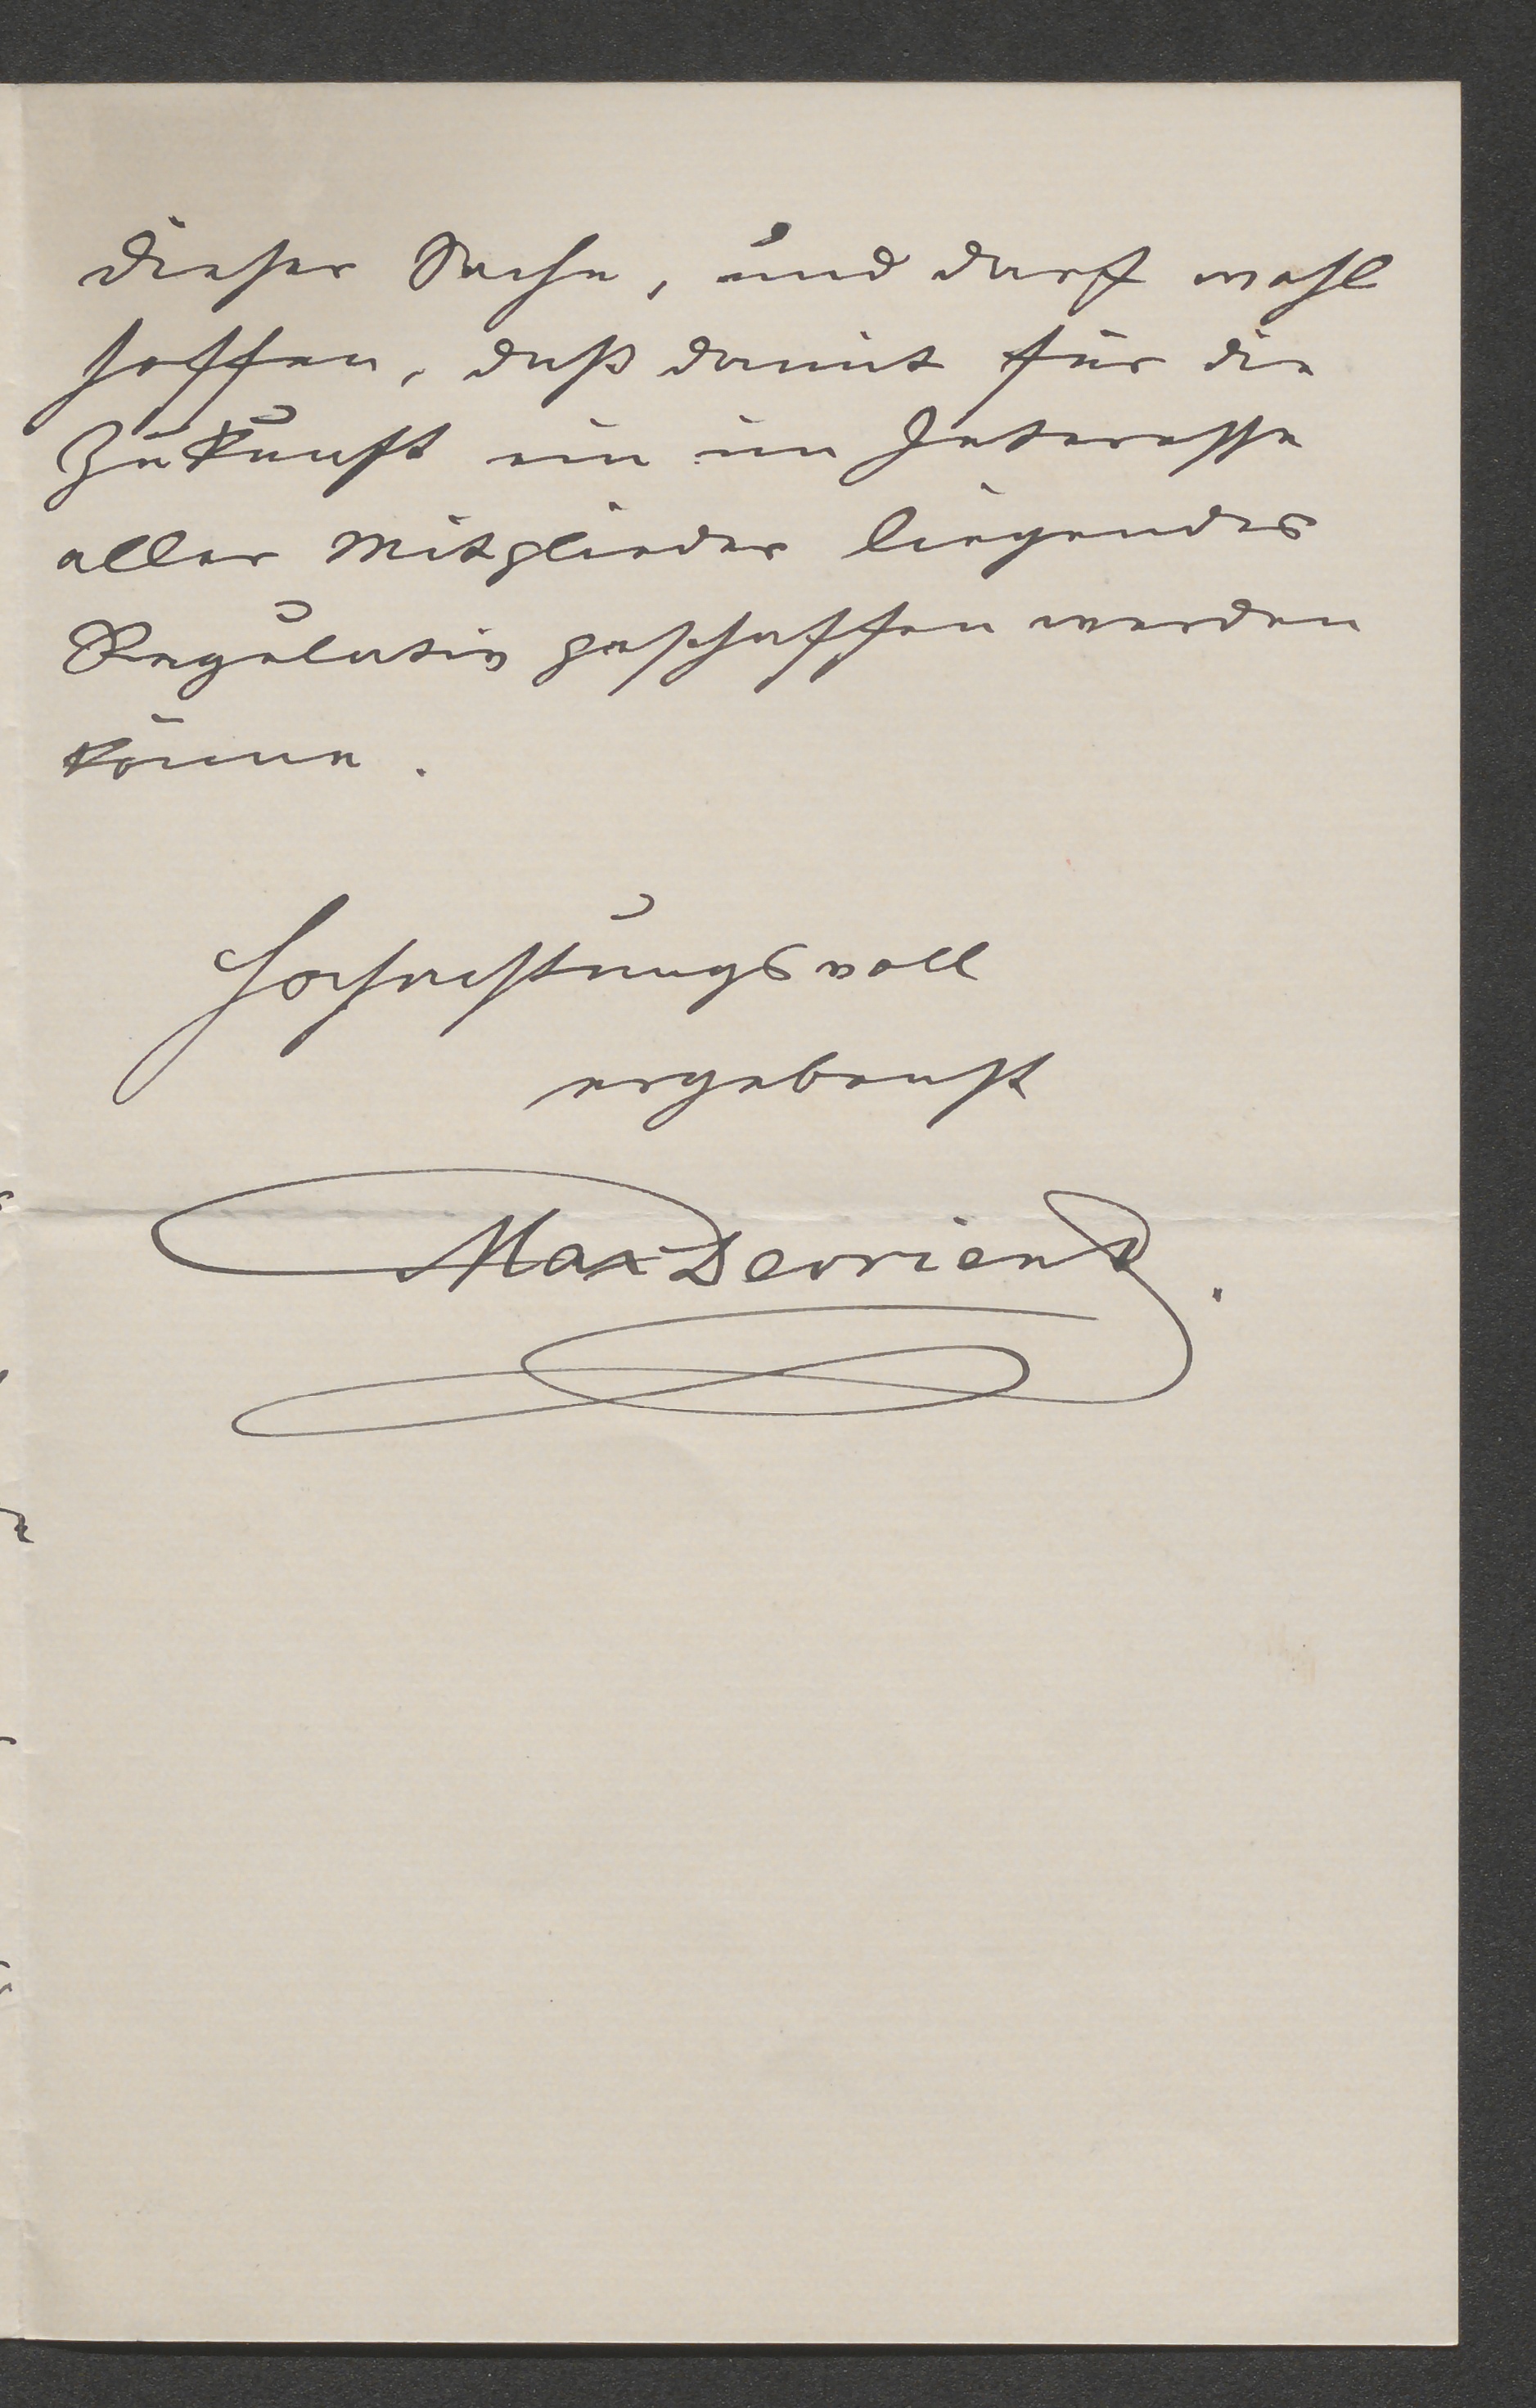 dieser Sache, und darf wohl
hoffen, daß damit für die
Zukunft ein im Interesse
aller Mitglieder liegendes
Regulativ geschaffen werden
könne.
Hochachtungsvoll
ergebenst
Max Devrient.